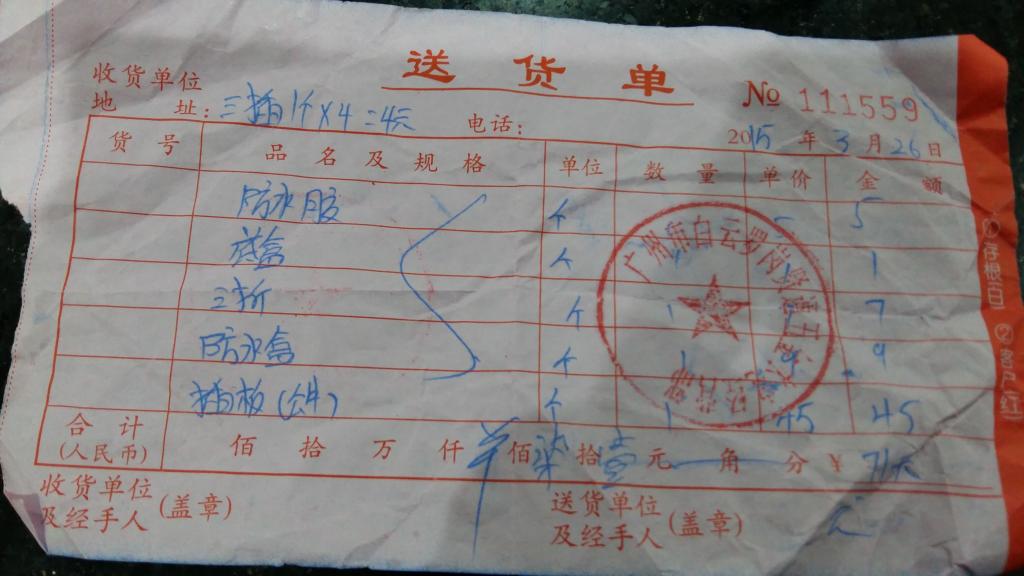 送货单
收货单位
地 址: 三插 1个×4=4元 电话:
№ 111559
2015年3月26日
货号 品名及规格 单位 数量 单价 金额
防水胶 个 5 5
底盒 个 1 1 1
三折 个 1 7 7
防水盒 个 1 9 9
插板(公牛) 个 1 45 45
合计
(人民币) 佰 拾 万 仟 佰 柒 拾 壹 元 角 分 ¥ 71元
收货单位
及经手人 (盖章)
送货单位
及经手人 (盖章)
广州市白云
①存根白 ②客户红